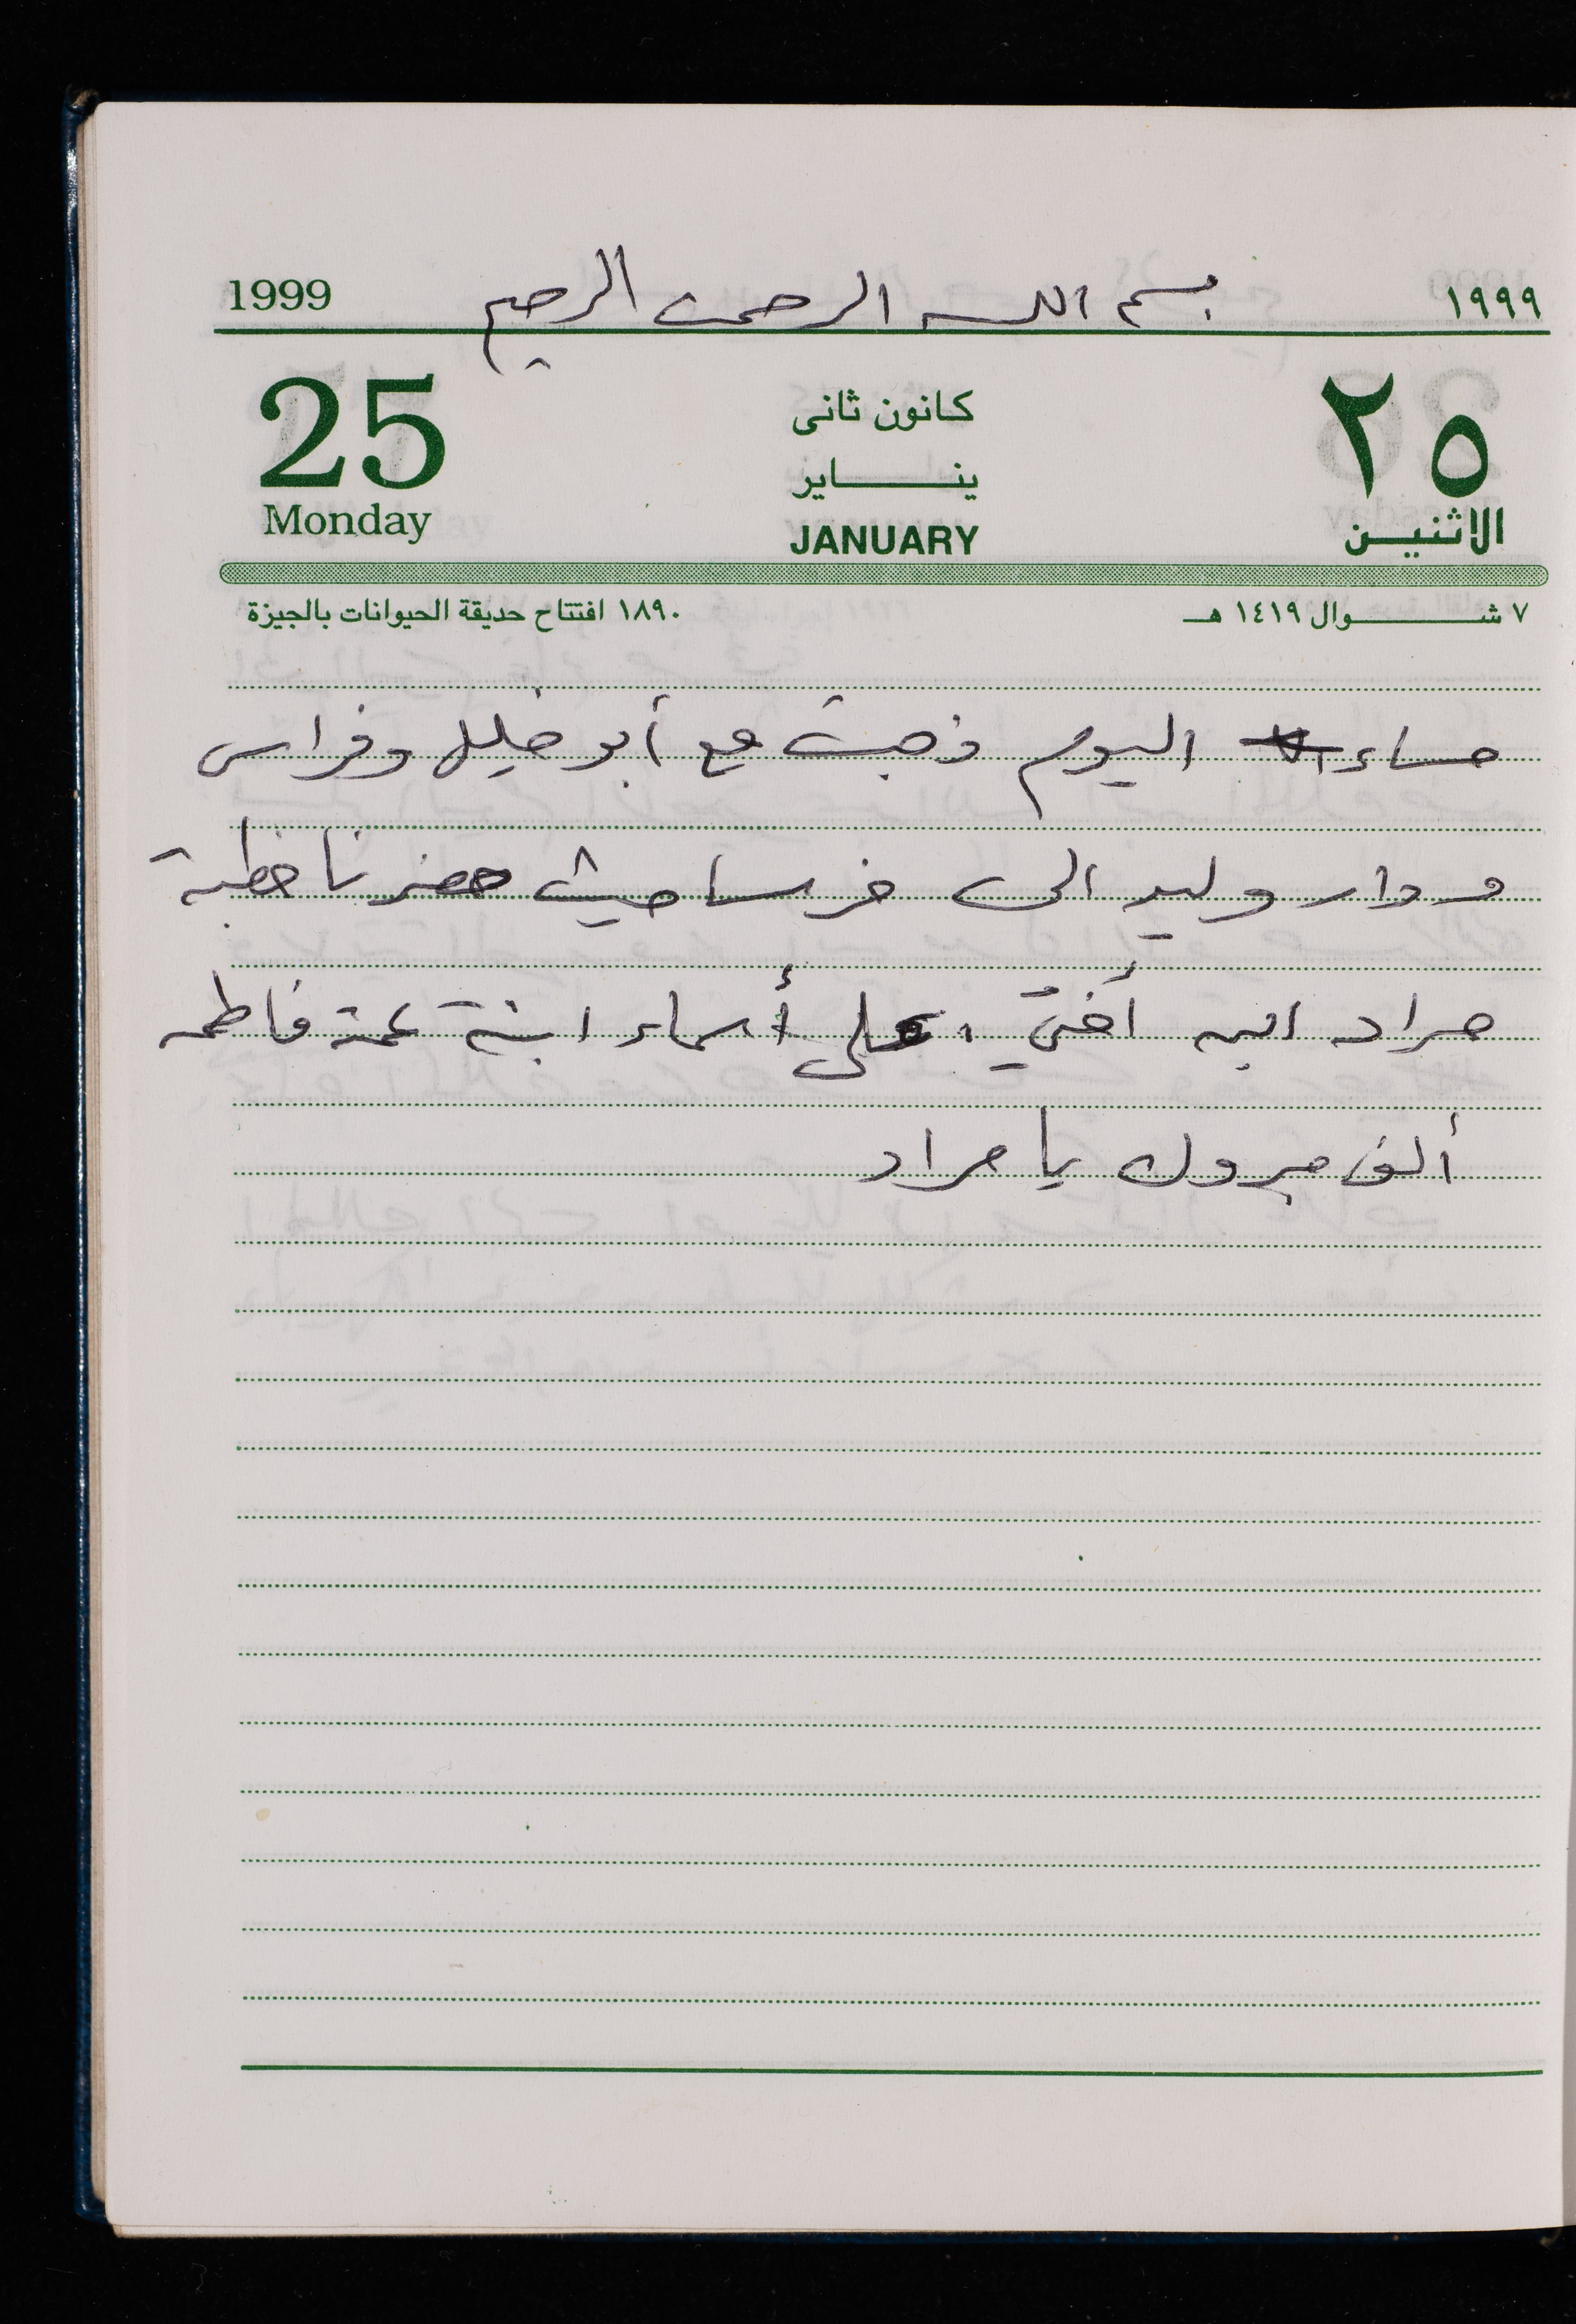 بسم الله الرحمن الرحيم
1999 ١٩٩٩
25 كانون ثانى ٢٥
ينـــاير
Monday JANUARY الاثنين
٧ شـــوال ١٤١٩ هـ ١٨٩٠ افتتاح حديقة الحيوانات بالجيزة
مساء اليوم ذهبت مع أبو خليل وفراس
ودار وليد الى خرسا حيث حضرنا خطبة
مراد ابن أختي على أسماء ابنة عمة فاطمة
ألف مبروك يا مراد